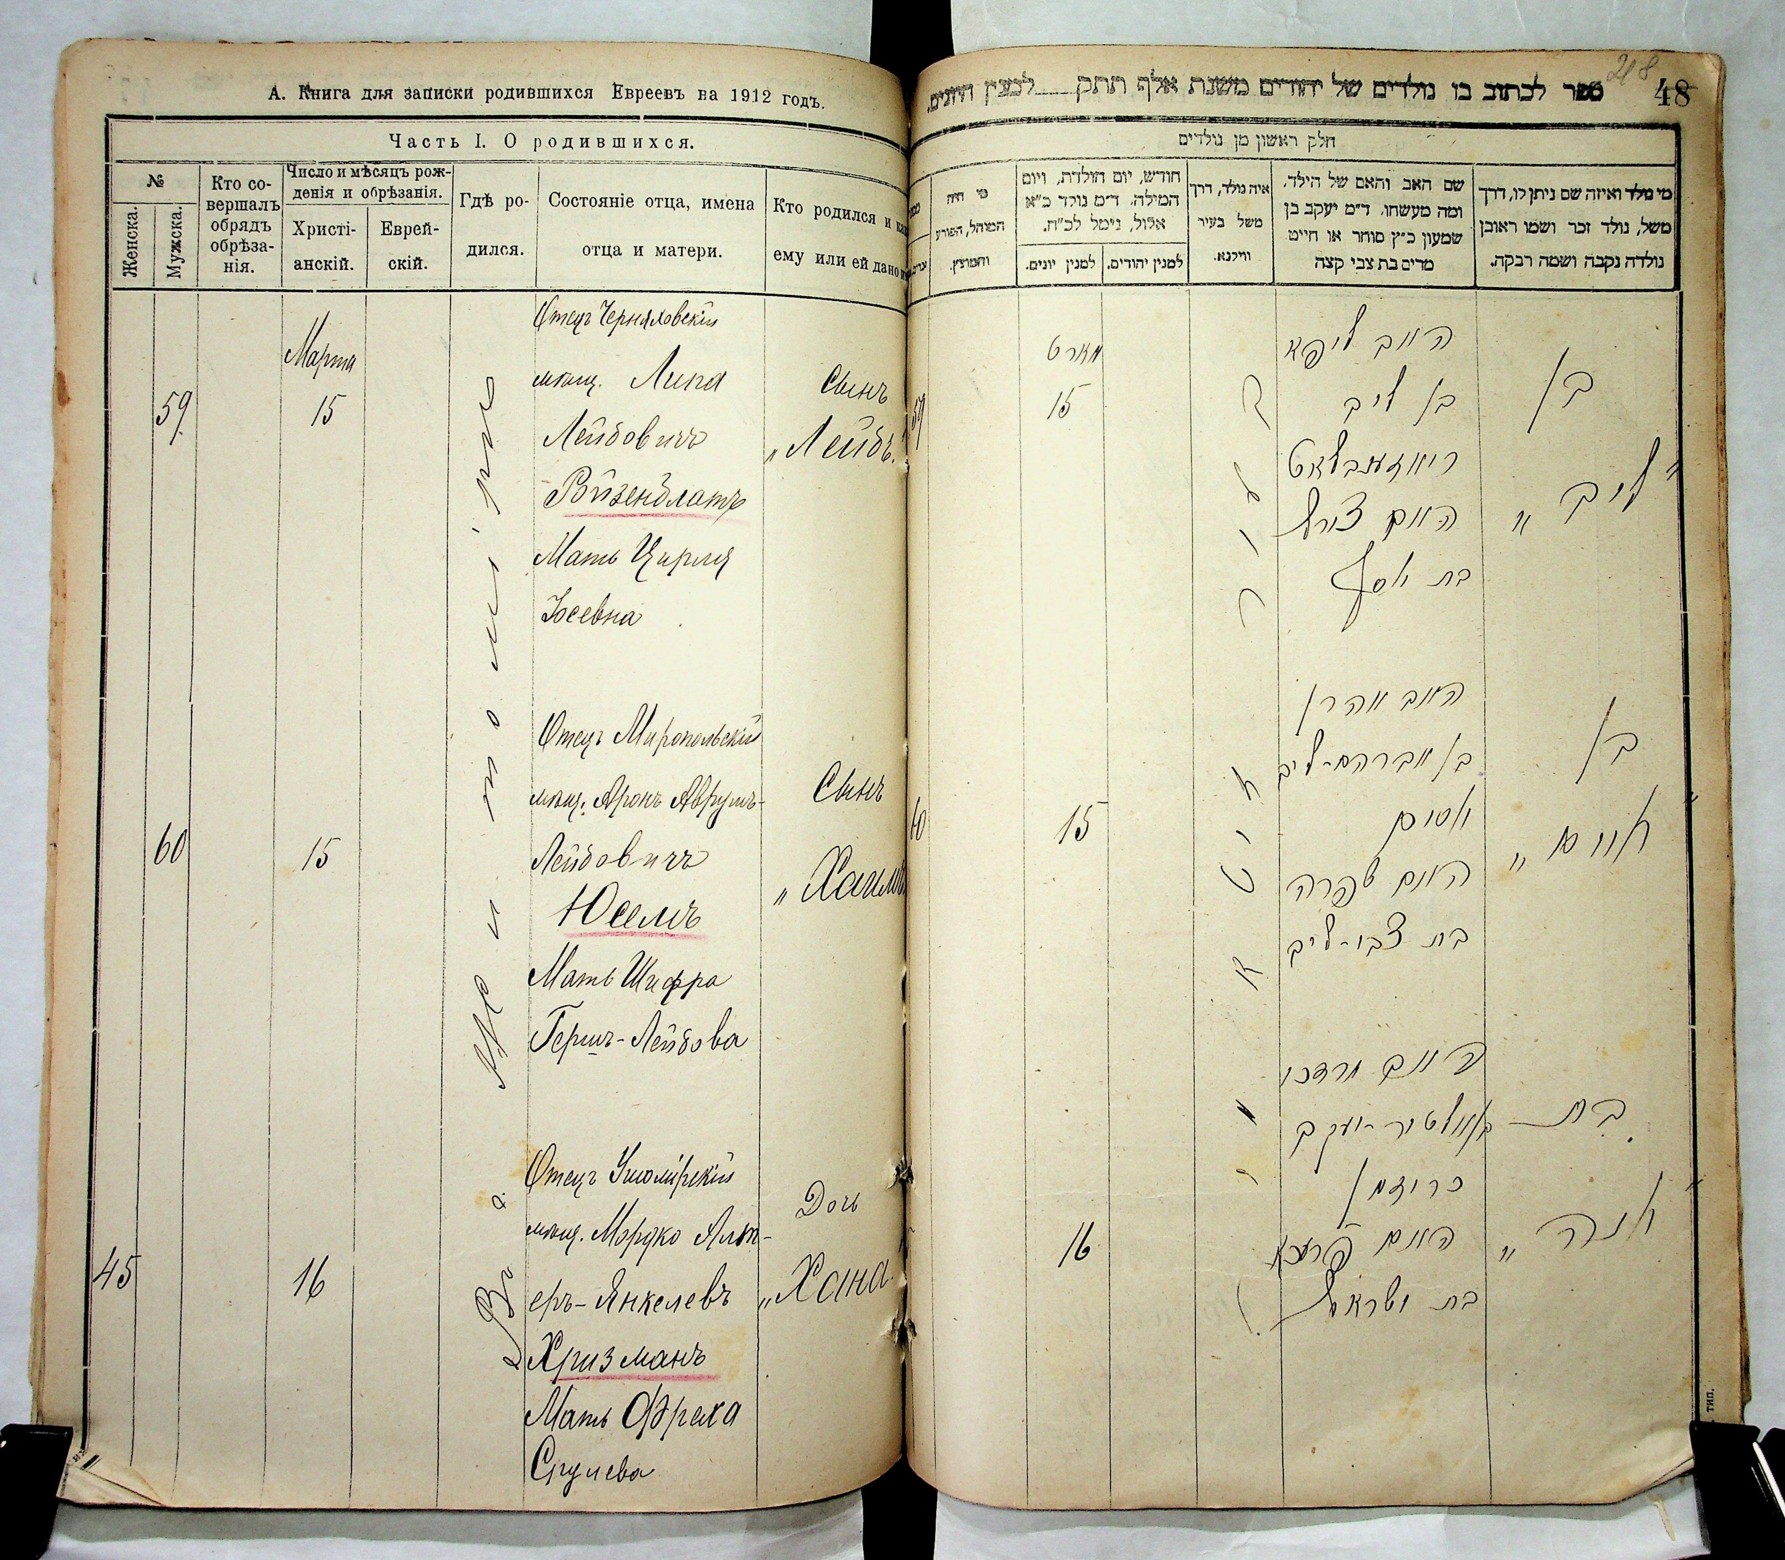 А. Книга для записки родившихся Евреевъ на 1912 годъ.
Часть I. О родившихся.
№
Женска.
Мужска.
Кто со-
вершалъ
обрядъ
обрѣза-
нія.
Число и мѣсяцъ рож-
денія и обрѣзанія.
Христі-
анскій.
Еврей-
скій.
Гдѣ ро-
дился.
Состояніе отца, имена
отца и матери.
Кто родился и
ему или ей дано
59
Марта
15
Въ г. Житомірѣ
Отецъ Черняховскій
мѣщ. Липа
Лейбовичъ
Войзенблатъ
Мать Цирля
Іосевна
Сынъ
„Лейбъ"
60
15
Отецъ Миропольскій
мѣщ. Аронъ Аврумъ-
Лейбовичъ
Юсемъ
Мать Шифра
Гершъ-Лейбова
Сынъ
„Хаимъ
45
16
Отецъ Ушомірскій
мѣщ. Мордко Альт-
еръ-Янкелевъ
Хризманъ
Мать Фрейха
Срулева
Дочь
„Хана
48
ספר לכתוב בו נולדים של יהודים משנת אלף תתק למנין היונים
חלק ראשון מן נולדים
מי נולד ואיזה שם ניתן לו, דרך
משל, נולד זכר ושמו ראובן
נולדה נקבה ושמה רבקה.
שם האב והאם של הילד,
ומה מעשהו. ד״מ יעקב בן
שמעון כ״ץ סוחר או חייט
מרים בת צבי קצה
איה נולד, דרך
משל בעיר
ווילנא.
חודש, יום הולדת, ויום
המילה. ד״מ נולד כ״א
אלול, נימל לכ״ח.
למנין יהודים.
למנין יונים.
מי היה
המוהל, הפורע
והמוצץ.
59
מארט
15
האב ליפא
בן ליב
האם צירל
בת יוסף
בן
„ ליב "
60
15
האב אהרן
בן אברהם-ליב
יוסים
האם שפרה
בת צבי-ליב
בן
„ חיים "
16
האב מרדכי
בן אלטיר-יעקב
כריזמן
האם
בת ישראל
בת
„ חנה "